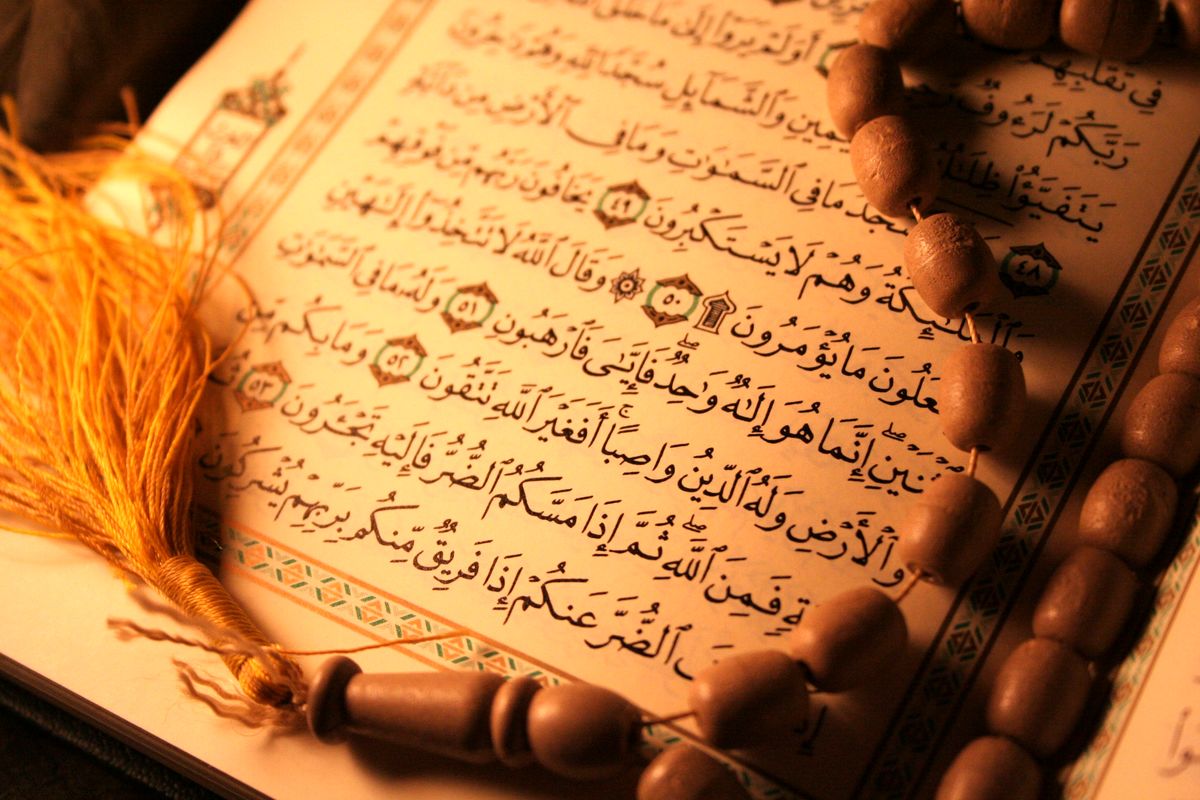 فِي تَقَلُّبِهِمْ
رَبَّكُمْ لَرَءُوفٌ أَوَلَمْ يَرَوْا۟ إِلَىٰ مَا خَلَقَ
يَتَفَيَّؤُا۟ ظِلَٰلُهُۥ وَٱلشَّمَآئِلِ سُجَّدًا لِّلَّهِ وَهُمْ دَٰخِرُونَ
٤٨ مَا فِي ٱلسَّمَٰوَٰتِ وَمَا فِي ٱلْأَرْضِ مِن دَآبَّةٍ
وَهُمْ لَا يَسْتَكْبِرُونَ ٤٩ يَخَافُونَ رَبَّهُم مِّن فَوْقِهِمْ
مَا يُؤْمَرُونَ ۩ ٥٠ ۞ وَقَالَ ٱللَّهُ لَا تَتَّخِذُوٓا۟ إِلَٰهَيْنِ
ٱثْنَيْنِ ۖ إِنَّمَا هُوَ إِلَٰهٌ وَٰحِدٌ ۖ فَإِيَّٰيَ فَٱرْهَبُونِ ٥١ وَلَهُۥ مَا فِي ٱلسَّمَٰوَٰتِ
وَٱلْأَرْضِ وَلَهُ ٱلدِّينُ وَاصِبًا ۚ أَفَغَيْرَ ٱللَّهِ تَتَّقُونَ ٥٢ وَمَا بِكُم مِّن
فَمِنَ ٱللَّهِ ۖ ثُمَّ إِذَا مَسَّكُمُ ٱلضُّرُّ فَإِلَيْهِ تَجْـَٔرُونَ ٥٣
ٱلضُّرَّ عَنكُمْ إِذَا فَرِيقٌ مِّنكُم بِرَبِّهِمْ يُشْرِكُونَ